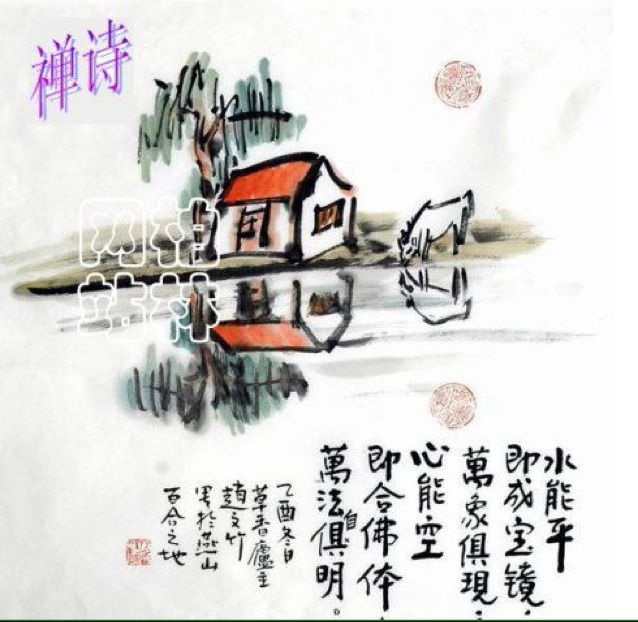 禅诗
柏林
网站
水能平
即成宝镜，
萬象俱現；
心能空
即合佛体，
萬法自俱明。
乙酉冬日
草香廬主
趙文竹
写於燕山
百合之地